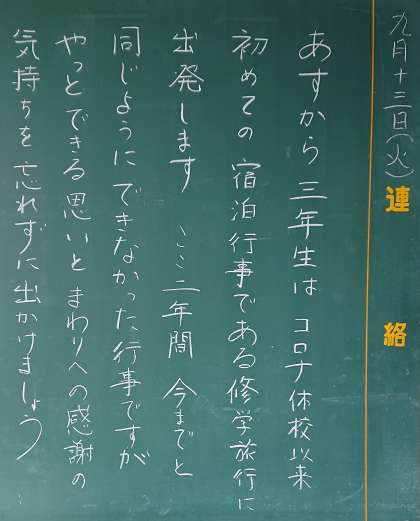 九月十三日(火)
連絡
あすから 三年生は コロナ休校以来
初めての 宿泊行事である修学旅行に
出発します ここ二年間 今までと
同じように できなかった行事ですが
やっとできる思いと まわりへの感謝の
気持ちを 忘れずに出かけましょう